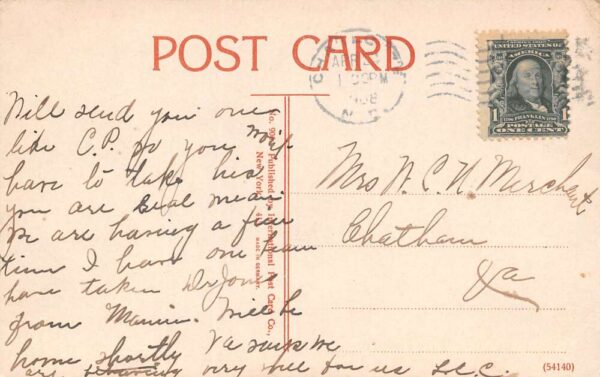 POST CARD
APR
1908
N.C.
UNITED STATES OF
AMERICA
1 FRANKLIN 1
POSTAGE
ONE CENT
Will send you one
like C.P. so you won't
have to take his
you are real mean.
We are having a fine
time I have one
have taken Dr
from . Will be
home shortly Va
are very well for us
Published by International Post Card Co.,
New York.
MADE IN GERMANY.
Mrs W. C. N. Merchant
Chatham
Va
(54140)